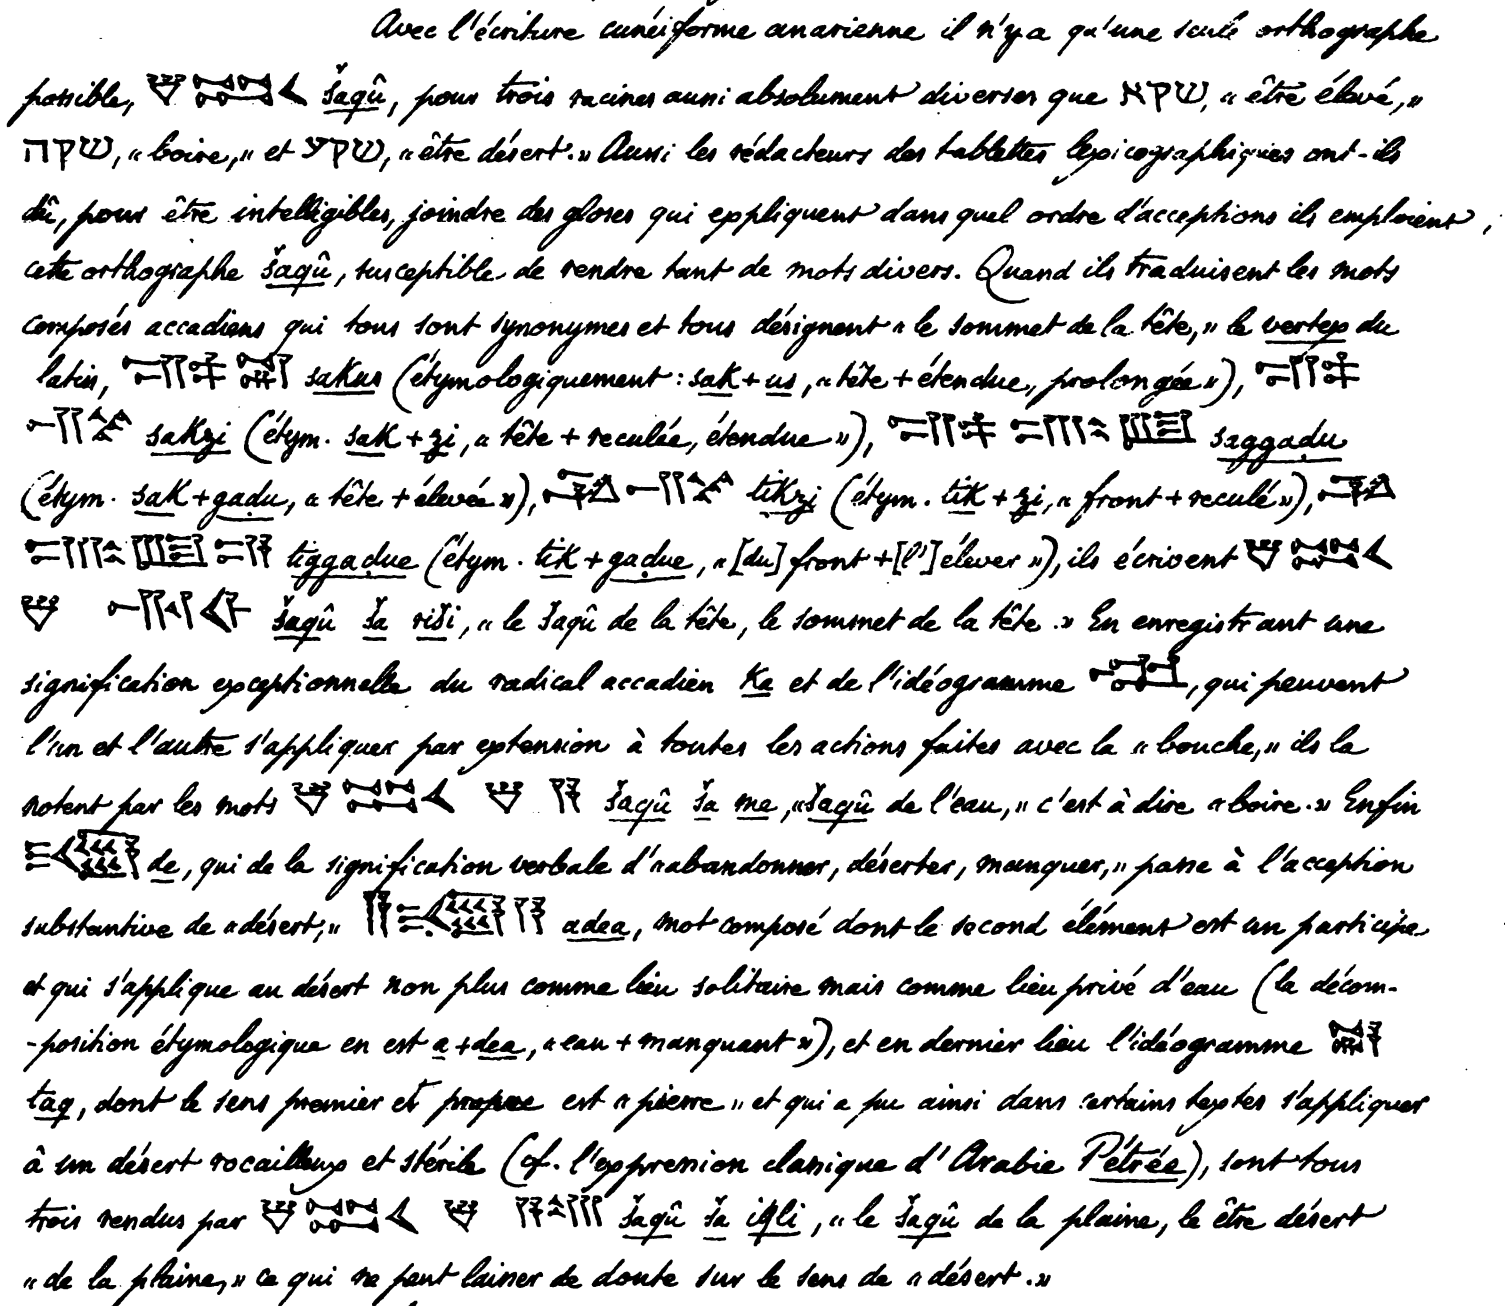 Avec l'écriture cunéiforme anarienne il n'y a qu'une seule orthographe
possible, šaqû, pour trois racines aussi absolument diverses que שקא, « être élevé, »
שקה, « boire, » et שקע, « être désert. » Aussi les rédacteurs des tablettes lexicographiques ont-ils
dû, pour être intelligibles, joindre des gloses qui expliquent dans quel ordre d'acceptions ils emploient
cette orthographe šaqû, susceptible de rendre tant de mots divers. Quand ils traduisent les mots
composés accadiens qui tous sont synonymes et tous désignent « le sommet de la tête, » le vertex du
latin, sakus (étymologiquement : sak + us, « tête + étendue, prolongée »),
sakzi (étym. sak + zi, « tête + reculée, étendue »), saggadu
(étym. sak + gadu, « tête + élevée »), tikzi (étym. tik + zi, « front + reculé »),
tiggadue (étym. tik + gadue, « [du] front + [l'] élever »), ils écrivent
šaqû ša riši, « le šaqû de la tête, le sommet de la tête. » En enregistrant une
signification exceptionnelle du radical accadien ka et de l'idéogramme , qui peuvent
l'un et l'autre s'appliquer par extension à toutes les actions faites avec la « bouche, » ils la
notent par les mots šaqû ša me, « šaqû de l'eau, » c'est à dire « boire. » Enfin
de, qui de la signification verbale d'« abandonner, déserter, manquer, » passe à l'acception
substantive de « désert, » adea, mot composé dont le second élément est un participe
et qui s'applique au désert non plus comme lieu solitaire mais comme lieu privé d'eau (la décom-
-position étymologique en est a + dea, « eau + manquant »), et en dernier lieu l'idéogramme
taq, dont le sens premier et propre est « pierre » et qui a pu ainsi dans certains textes s'appliquer
à un désert rocailleux et stérile (cf. l'expression classique d'Arabie Pétrée), sont tous
trois rendus par šaqû ša iqli, « le šaqû de la plaine, le être désert
« de la plaine, » ce qui ne peut laisser de doute sur le sens de « désert. »